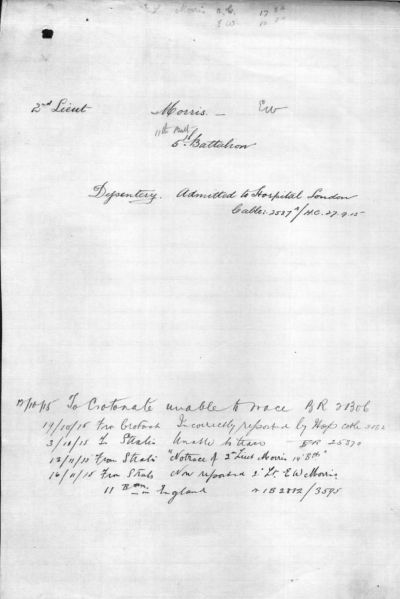 Morris
E W
2nd Lieut Morris. — EW
11th
5th Battalion
Dysentery. Admitted to Hospital London
Cable: 2537 A/H.C. 27.9.15
To Crotonate unable to trace BR 21306
19/10/15 Fro Crotonate Incorrectly reported by Hosp cable
3/11/15 To Strabs Unable to trace — BR 25870
12/11/15 From Strabs "No trace of 2nd Lieut Morris 14 Bth"
16/11/15 From Strabs Now reported 2/Lt. E W Morris
11 Bttn. England 1B 2812/3595